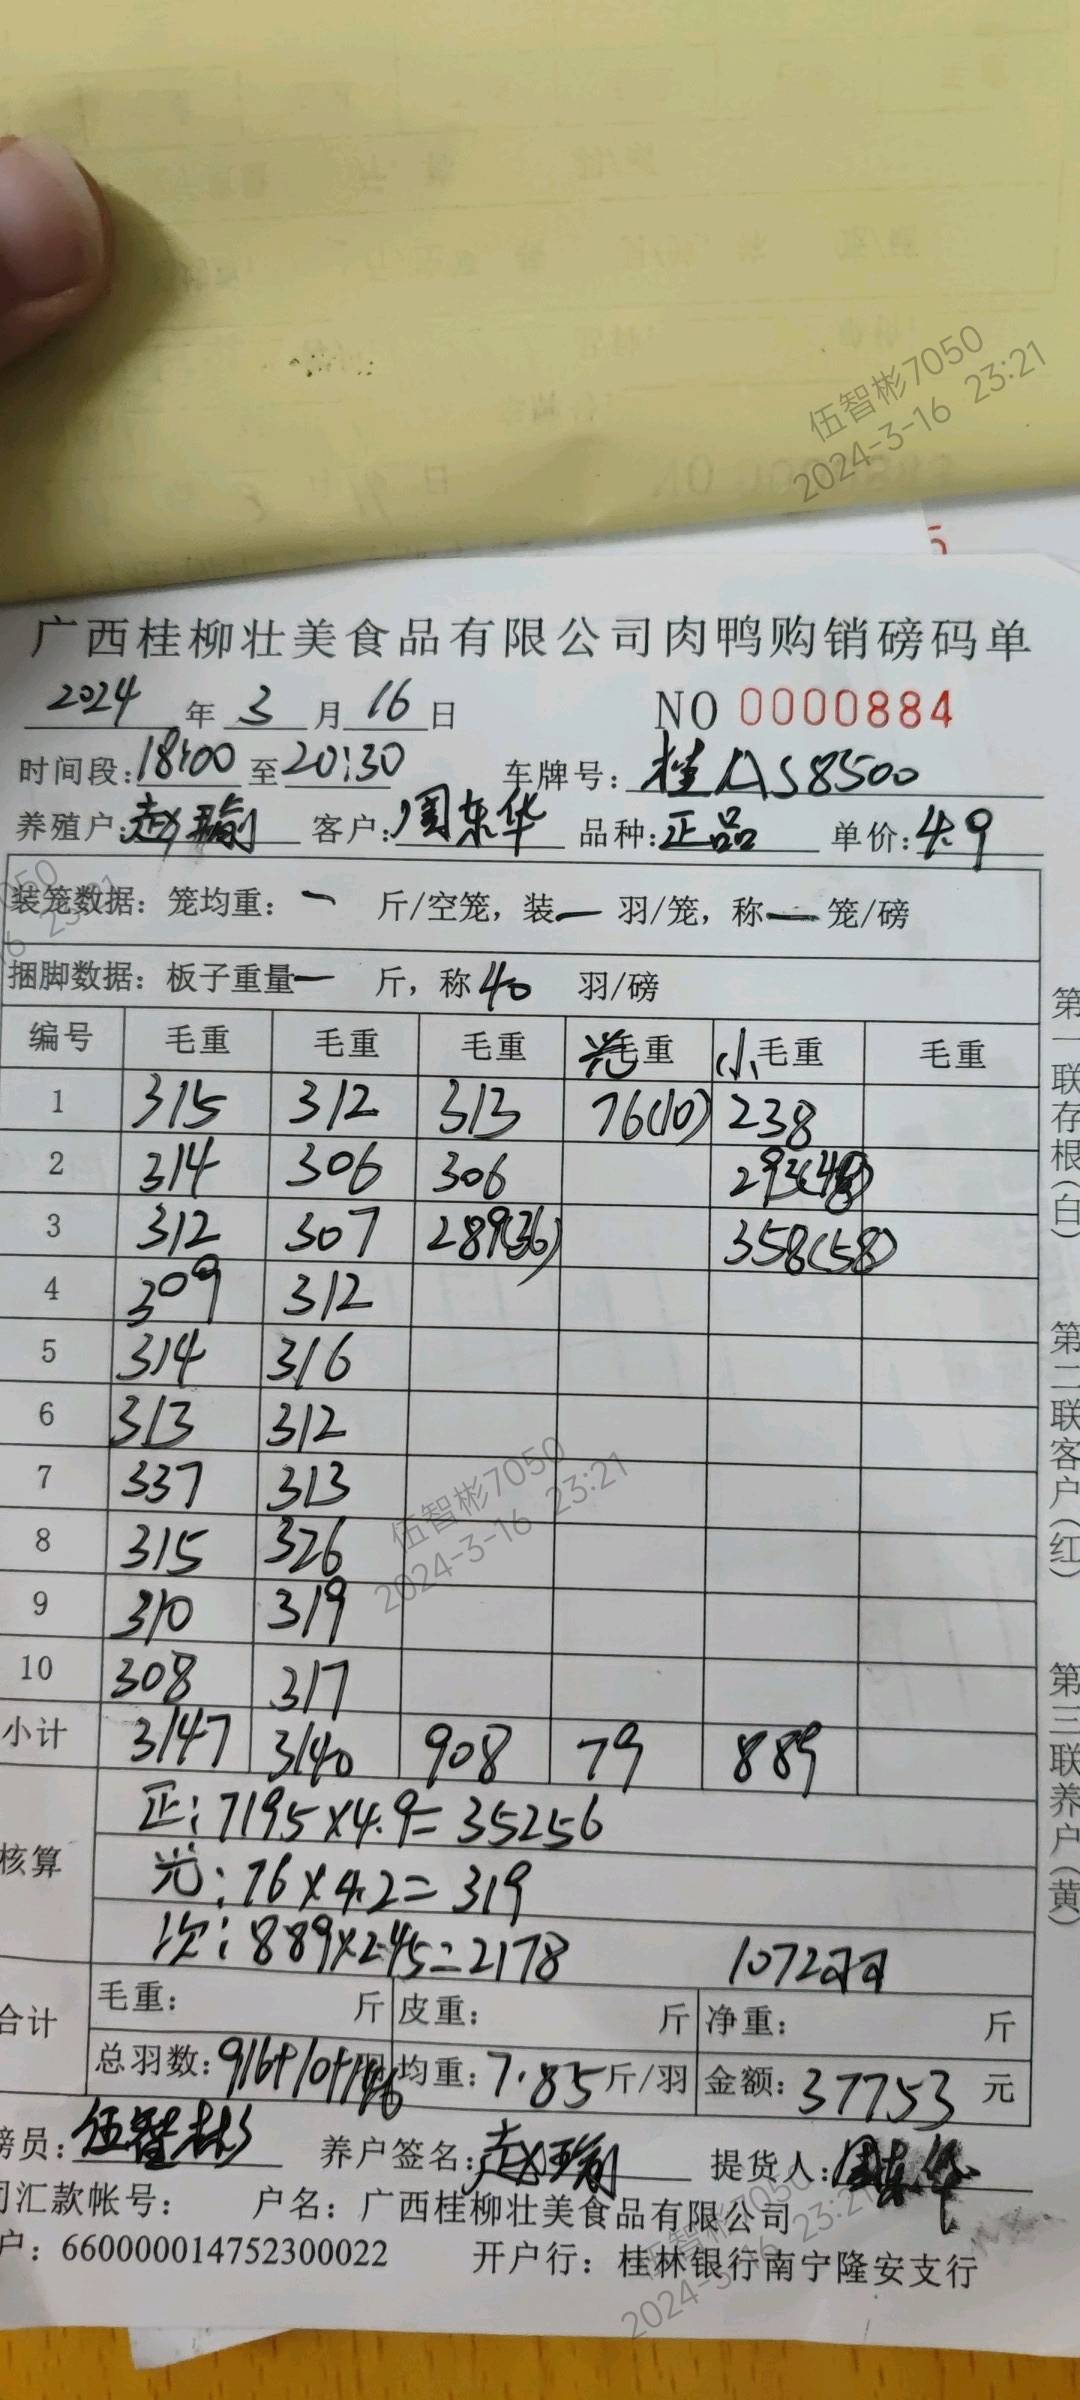 伍智彬7050
2024-3-16 23:21
广西桂柳壮美食品有限公司肉鸭购销磅码单
2024年3月16日 NO 0000884
时间段:18:00至20:30 车牌号:桂AS8500
养殖户:赵瑜 客户:周东华 品种:正品 单价:4.9
装笼数据: 笼均重: 一 斤/空笼, 装一 羽/笼, 称一 笼/磅
捆脚数据: 板子重量一 斤, 称40 羽/磅
编号 毛重 毛重 毛重 光毛重 小毛重 毛重
1 315 312 313 76(10) 238
2 314 306 306
3 312 307 289(36) 358(58)
4 309 312
5 314 316
6 313 312
7 337 313
8 315 326
9 310 319
10 308 317
小计 3147 3140 908 79 889
核算
正:7195×4.9=35256
光:76×4.2=319
次:889×2.45=2178 1072
合计 毛重: 斤 皮重: 斤 净重: 斤
总羽数:916+10+146 均重:7.85斤/羽 金额:37753元
磅员:伍智彬 养户签名:赵瑜 提货人:周东华
司汇款帐号: 户名: 广西桂柳壮美食品有限公司
户: 660000014752300022 开户行: 桂林银行南宁隆安支行
第一联存根(白)
第二联客户(红)
第三联养户(黄)
伍智彬7050
2024-3-16 23:21
伍智彬7050
2024-3-16 23:21